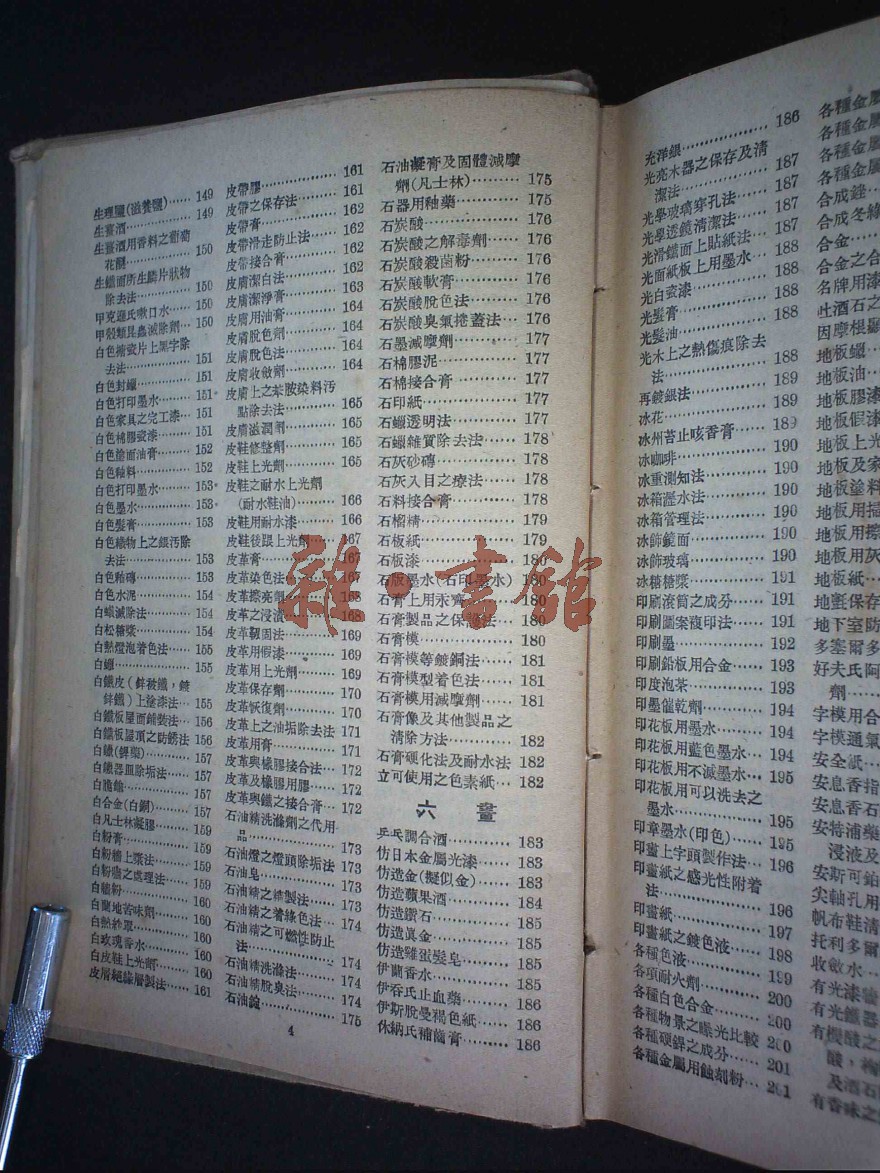 生理鹽(滋養鹽)…… 149
生薑酒…… 149
生薑酒用香料之葡萄
花醚…… 150
生鐵面所生鱗片狀物
除去法…… 150
甲克遜氏嗽口水…… 150
甲殼類昆蟲滅除劑… 150
白色搪瓷片上黑字除
去法…… 151
白色封蠟…… 151
白色打印墨水…… 151
白色家具之完工漆… 151
白色棉膠瓷漆…… 151
白色塗面油膏…… 152
白色釉料…… 152
白色打印墨水…… 153
白色墨水…… 153
白色髮膏…… 153
白色織物上之銀污除
去法…… 153
白色釉磚…… 153
白色水泥…… 154
白蟻滅除法…… 154
白松糖漿…… 154
白熱燈泡着色法…… 155
白蠟…… 155
白鐵皮(鋅被鐵,鍍
鋅鐵)上塗漆法… 155
白鐵板屋面鋪裝法… 156
白鐵板屋頂之防銹法 156
白鑞(錫製)…… 157
白鐵器皿除垢法…… 157
白脫鹼…… 157
白合金(白銅)…… 157
白凡士林凝膠…… 159
白粉膏…… 159
白粉牆上漿法…… 159
白粉牆之處理法…… 159
白糖粉…… 160
白蘭地苦味劑…… 160
白熱紗罩…… 160
白玫瑰香水…… 160
白皮鞋上光劑…… 160
皮屑絕緣層製法…… 161
皮帶膠…… 161
皮帶之保存法…… 161
皮帶膏…… 162
皮帶滑走防止法…… 162
皮帶接合膏…… 162
皮膚潔白法…… 162
皮膚潔淨膏…… 163
皮膚用油膏…… 164
皮膚脫色劑…… 164
皮膚脫色法…… 164
皮膚收斂劑…… 164
皮膚上之苯胺染料汚
點除去法…… 165
皮膚滋潤劑…… 165
皮鞋修整劑…… 165
皮鞋上光劑…… 165
皮鞋之耐水上光劑
(耐水鞋油)…… 166
皮鞋用耐水漆…… 166
皮鞋後跟上光劑…… 167
皮革膏…… 167
皮革染色法…… 167
皮革擦亮劑…… 168
皮革之浸漬…… 168
皮革靱固法…… 169
皮革用假漆…… 169
皮革用上光劑…… 169
皮革保存劑…… 170
皮革恢復劑…… 170
皮革上之油垢除去法 171
皮革用膏…… 171
皮革與橡膠接合法… 172
皮革及橡膠用膠…… 172
皮革與鐵之接合膏… 172
石油精洗滌劑之代用
品…… 173
石油燈之燈頭除垢法 173
石油皂…… 173
石油精之精製法…… 173
石油精之着綠色法… 174
石油精之可燃性防止
法…… 174
石油精洗滌法…… 174
石油精脫臭法…… 174
石油鎗…… 175
石油凝膏及固體減摩
劑(凡士林)…… 175
石器用釉藥…… 175
石炭酸…… 176
石炭酸之解毒劑…… 176
石炭酸殺菌粉…… 176
石炭酸軟膏…… 176
石炭酸脫色法…… 176
石炭酸臭氣掩蓋法… 176
石墨減摩劑…… 177
石棉膠泥…… 177
石棉接合膏…… 177
石印紙…… 177
石蠟透明法…… 177
石蠟雜質除去法…… 178
石灰砂磚…… 178
石灰入目之療法…… 178
石料接合膏…… 178
石榴精…… 179
石板紙…… 179
石板漆…… 180
石版墨水(石印墨水) 180
石膏上用汞齊…… 180
石膏製品之保護法… 180
石膏模…… 180
石膏模等鍍銅法…… 181
石膏模型着色法…… 181
石膏模用減摩劑…… 181
石膏像及其他製品之
清除方法…… 182
石膏硬化法及耐水法 182
立可使用之色素紙… 182
六　畫
乒乓調合酒…… 183
仿日本金屬光漆…… 183
仿造金(擬似金)…… 183
仿造蘋果酒…… 184
仿造鑽石…… 185
仿造眞金…… 185
仿造雞蛋髮皂…… 185
伊蘭香水…… 185
伊吞氏止血藥…… 186
伊斯脫曼褐色紙…… 186
休納氏補齒膏…… 186
4
充洋銀…… 186
光亮木器之保存及清
潔法…… 187
光學玻璃穿孔法…… 187
光學透鏡清潔法…… 187
光滑鐵面上貼紙法… 187
光面紙板上用墨水… 188
光白瓷漆…… 188
光髮膏…… 188
光髮油…… 188
光木上之熱傷痕除去
法…… 188
再鍍銀法…… 189
冰花…… 189
冰州苔止咳香膏…… 189
冰咖啡…… 190
冰重測知法…… 190
冰箱瀝水法…… 190
冰箱管理法…… 190
冰飾鏡面…… 190
冰飾玻璃…… 190
冰糖糖漿…… 191
印刷滾筒之成分…… 191
印刷圖案複印法…… 191
印刷墨…… 192
印刷鉛板用合金…… 193
印度泡茶…… 193
印墨催乾劑…… 194
印花板用墨水…… 194
印花板用藍色墨水… 194
印花板用不滅墨水… 195
印花板用可以洗去之
墨水…… 195
印章墨水(印色)…… 195
印畫上字頭製作法… 196
印畫紙之感光性附着
法…… 196
印畫紙…… 197
印畫紙之鍍色液…… 198
各種色液…… 199
各項耐火劑…… 200
各種白色合金…… 200
各種物景之曝光比較 200
各種硬銲之成分…… 201
各種金屬用蝕刻粉… 201
各種金屬
各種金屬
各種金屬
各種金屬
合成銼
合成冬綠
合金
合金之合
名牌用漆
吐酒石之
因摩根
地板蠟
地板油
地板膠漆
地板假漆
地板上光
地板及家
地板塗料
地板用掃
地板用擦
地板用灰
地板紙
地氈保存
地下室防
多塞爾多
好夫氏阿
劑
字模用合
字模通氣
安全紙
安息香指
安息香石
安特浦藥
浸液及
安斯可鉑
尖軸孔用
帆布鞋清
托利多爾
收斂水
有光漆
有光鐵器
有機酸之
酸,
及酒石
有香味之
雜·書館